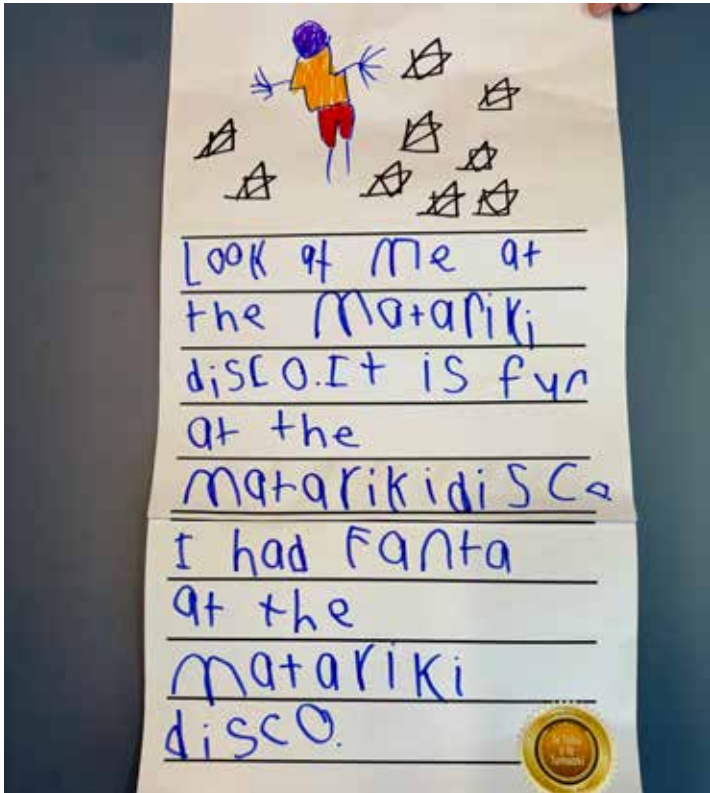 Look at me at
the Matariki
disco. It is fun
at the
matarikidisco
I had Fanta
at the
matariki
disco.